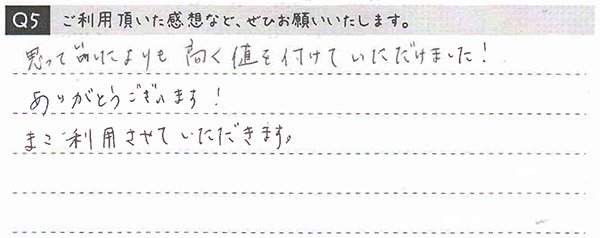 Q5 ご利用頂いた感想など、ぜひお願いいたします。
思って歩いたよりも高く値を付けていただけました！
ありがとうございます！
またご利用させていただきます。